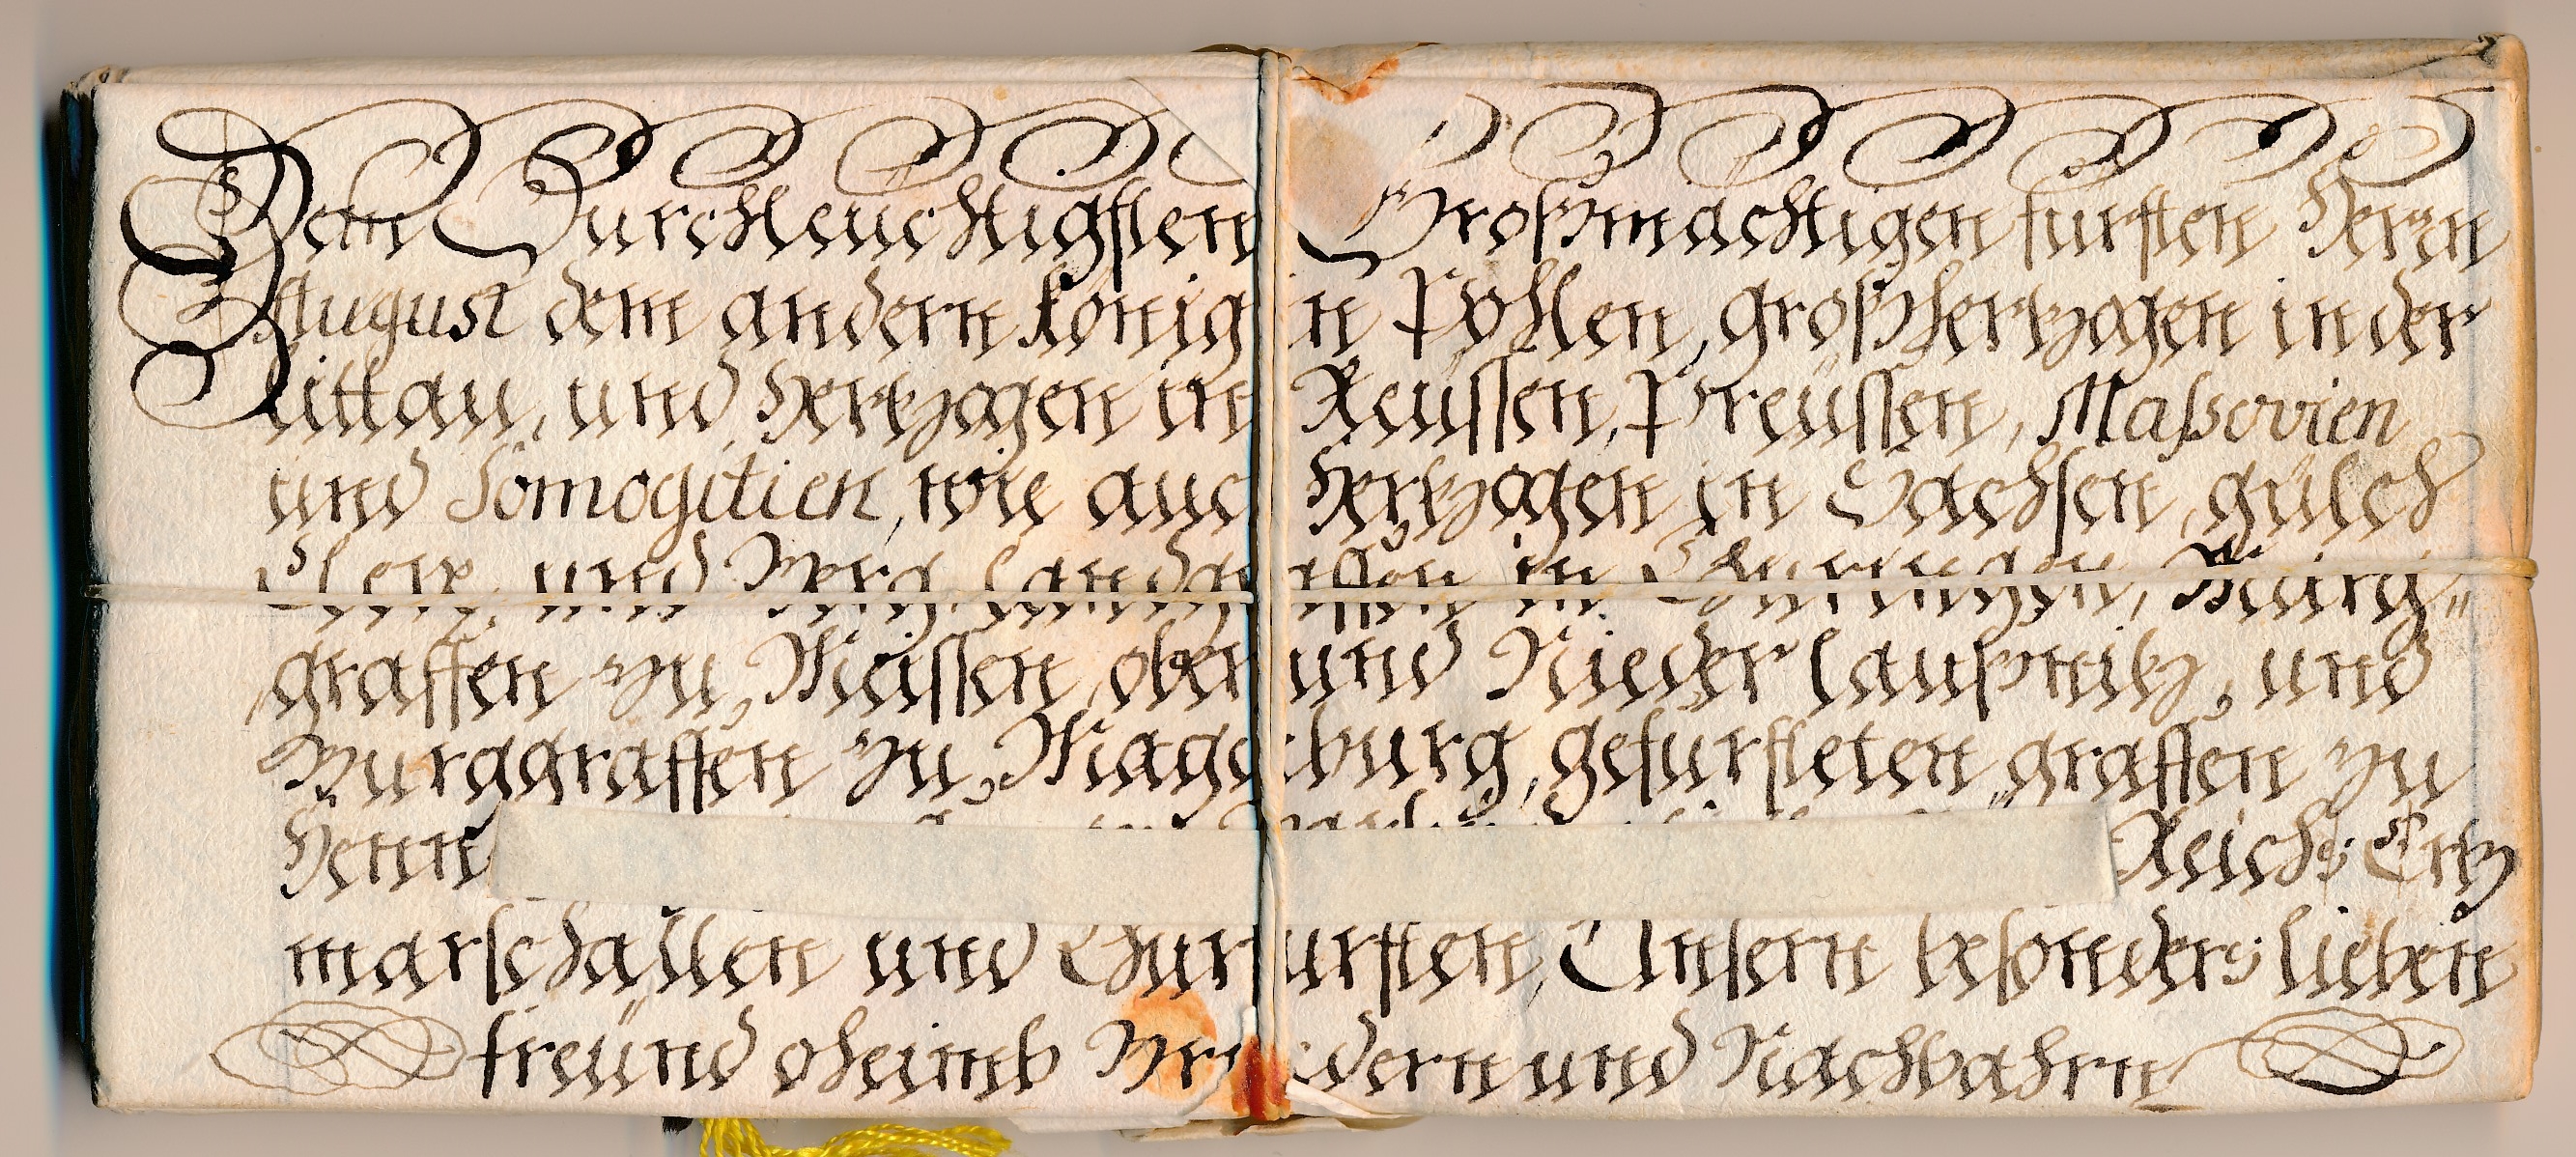 Dem Durchleuchtigsten Großmächtigen fürsten Herrn
August dem andern König in Pohlen, großhertzogen in der
Littau, und Hertzogen in Reüssen, Preüssen, Maßovien
und Somogitien, wie auch Hertzogen in Sachsen, gülch
Cleve und Berg, Landgraffen in Thüringen, Marg„
graffen zu Meissen, ober und Nieder laußnitz, und
Burggraffen zu Magdeburg, gefürsteten graffen zu
Reichs Ertz
marschallen und Churfürsten, Unsern besonders lieben
freünd oheimb Bruedern und Nachbahrn